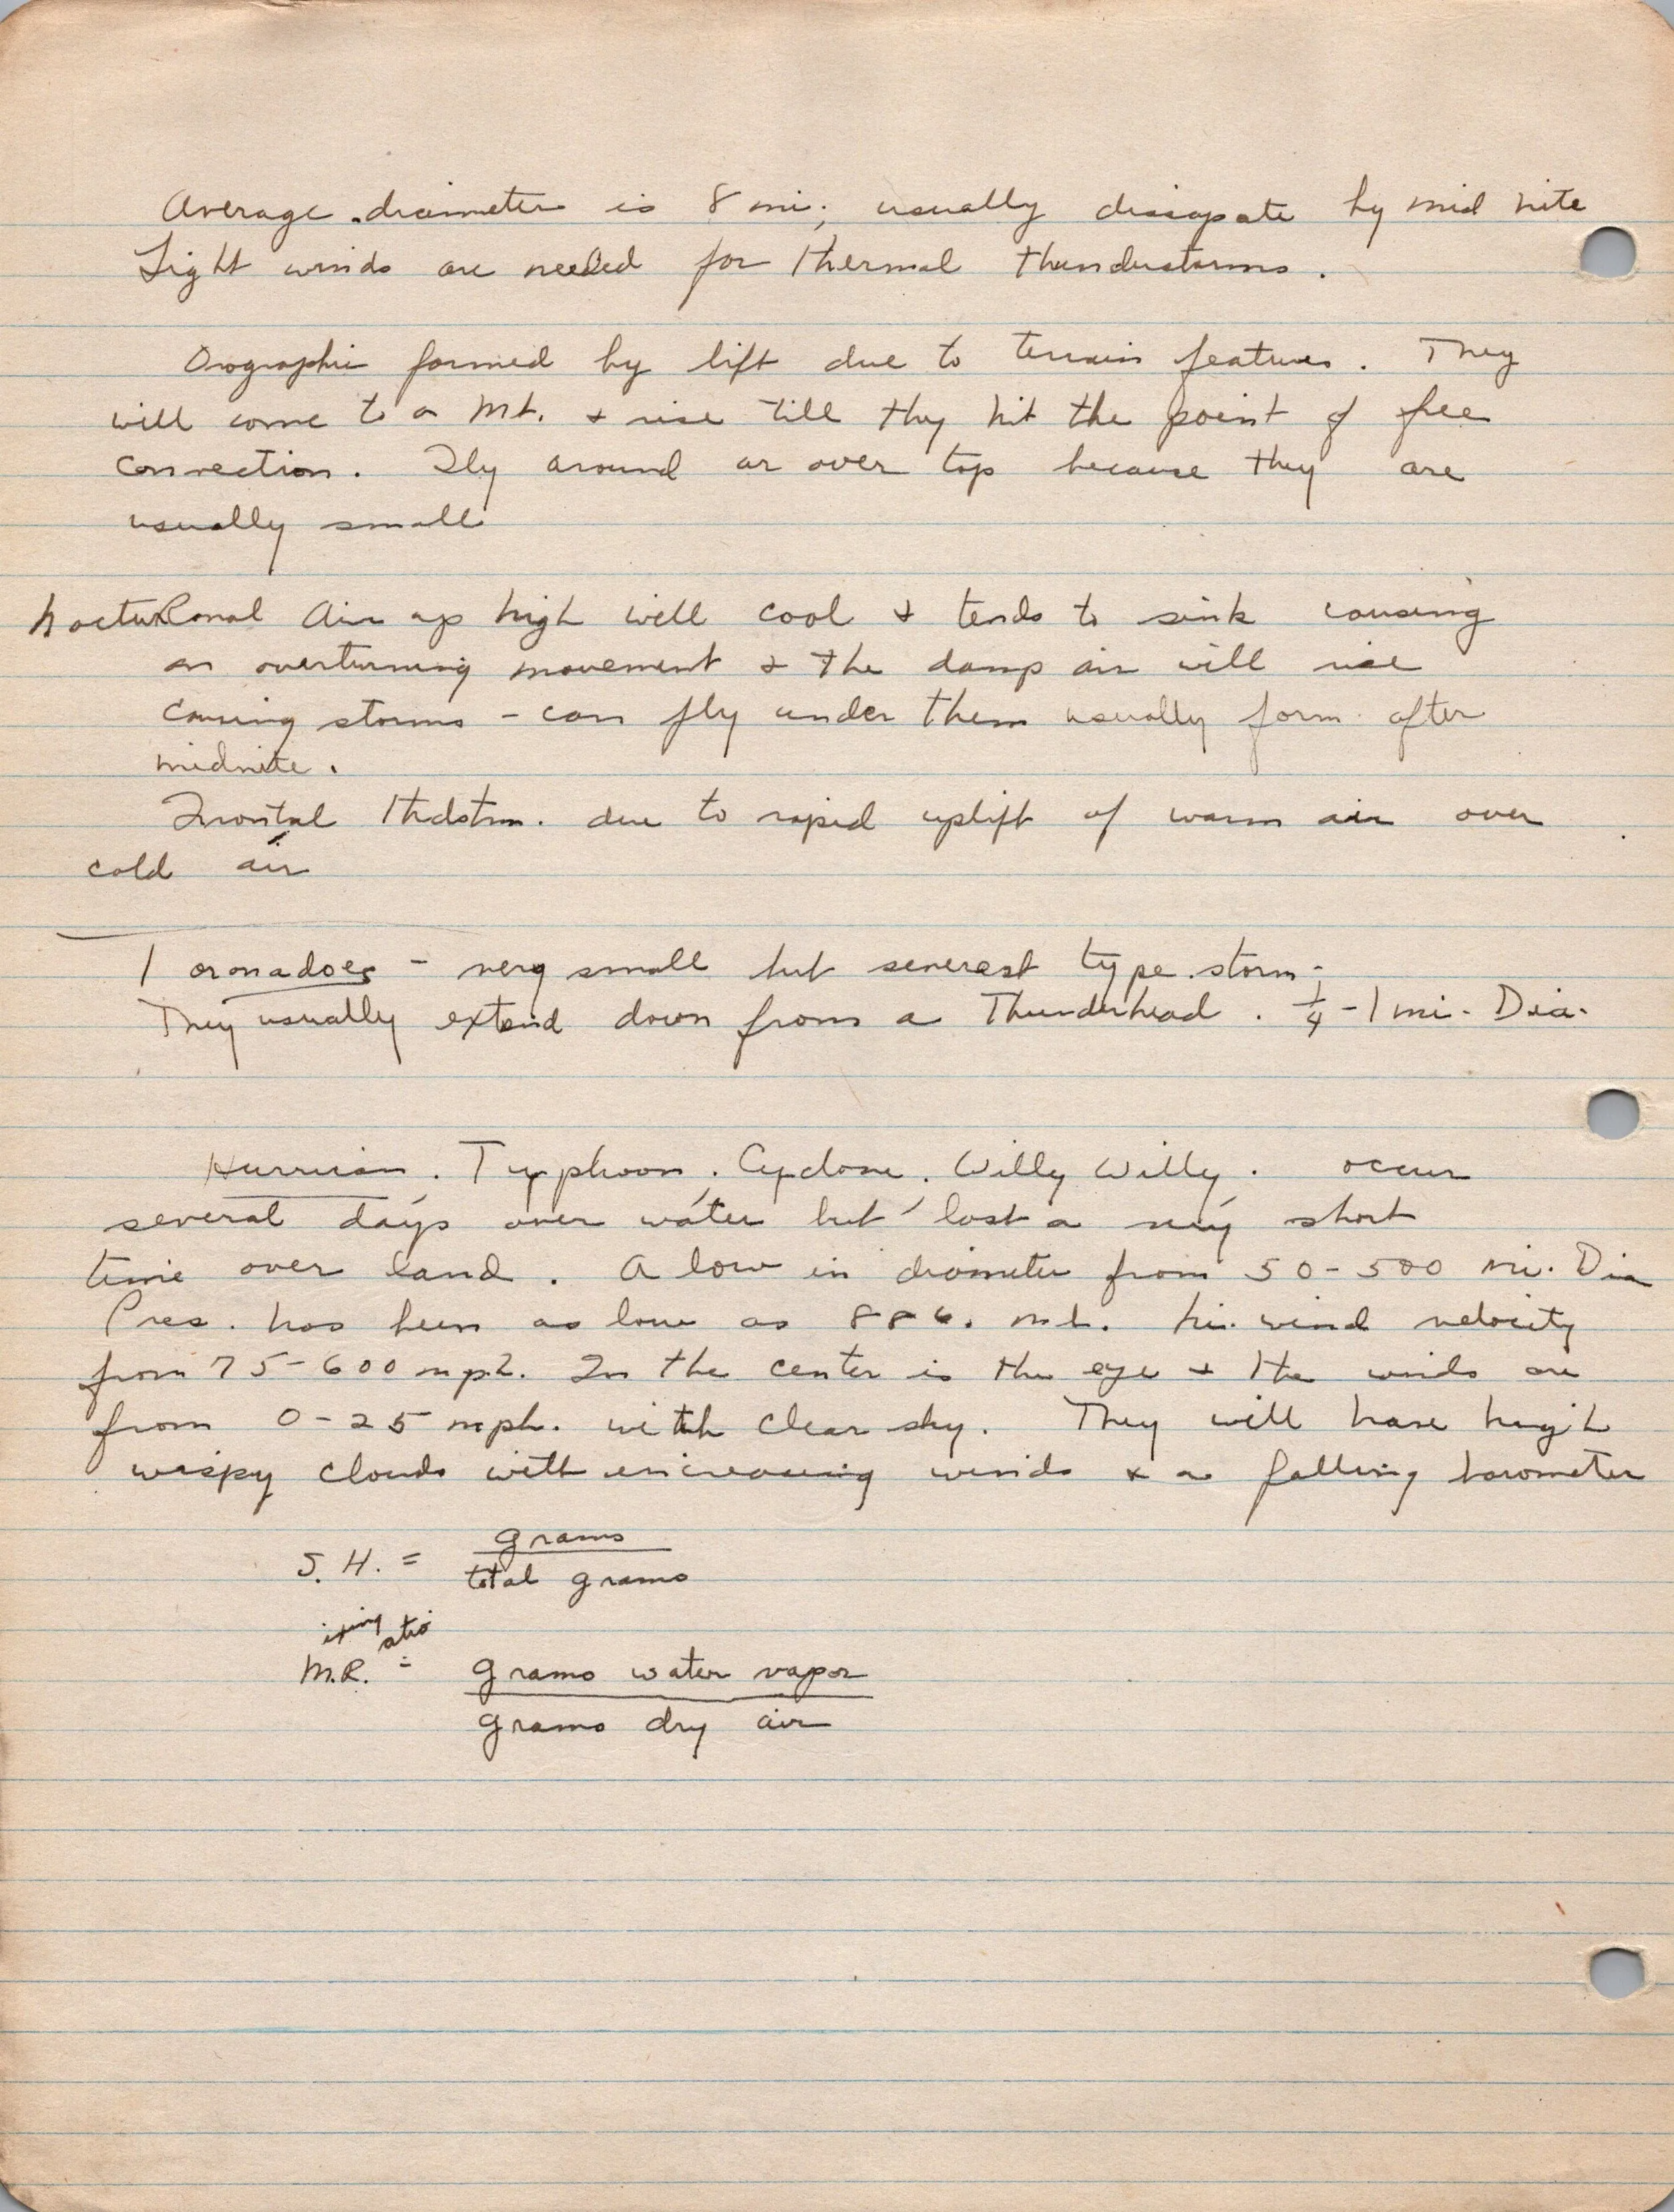 Average diameter is 8 mi; usually dissapate by mid nite
Light winds are needed for thermal thunderstorms.
Orographic formed by lift due to terrain features. They
will come to a Mt. + rise till they hit the point of free
convection. Fly around or over top because they are
usually small
Nocturnal Air up high will cool + tends to sink causing
an overturning movement + the damp air will rise
causing storms - can fly under them usually form after
midnite.
Frontal thdstm. due to rapid uplift of warm air over
cold air
Toronadoes - very small but severest type storm.
They usually extend down from a Thunderhead. 1/4 - 1 mi. Dia.
Hurrican. Typhoon. Cyclone. Willy Willy. occur
several days over water but last a very short
time over land. A low in diameter from 50-500 mi. Dia
Pres. has been as low as 886. mb. hi. wind velocity
from 75-600 mph. In the center is the eye + the winds are
from 0-25 mph. with clear sky. They will have high
wispy clouds with increasing winds + a falling barometer
S.H. = grams
total grams
ixing atio
M.R. = grams water vapor
grams dry air